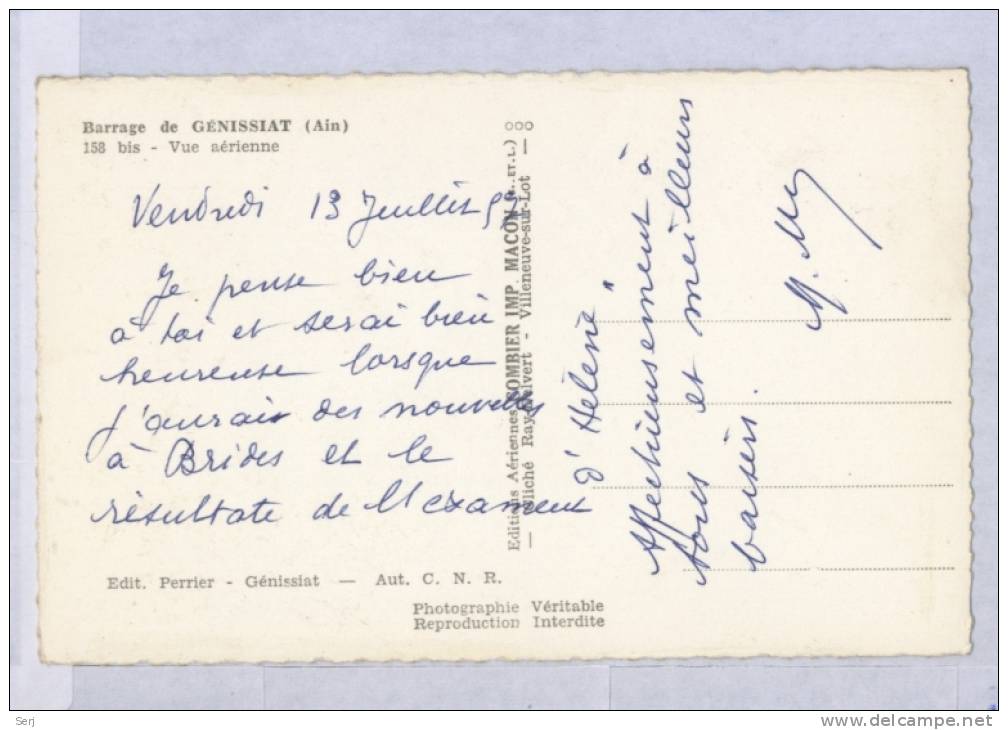 Barrage de GÉNISSIAT (Ain)
158 bis - Vue aérienne
Vendredi 13 Juillet
Je pense bien
à toi et serai bien
heureuse lorsque
j'aurais des nouvelles
à Brides et le
résultate de l'exament
d'Hélène"
Affectieusement à
tous et meilleurs
baisers.
Editions Aériennes SOMBIER IMP. MACON (S.-ET-L.) ooo
— Cliché Ray-Delvert - Villeneuve-sur-Lot —
Edit. Perrier - Génissiat — Aut. C. N. R.
Photographie Véritable
Reproduction Interdite
Serj
www.delcampe.net